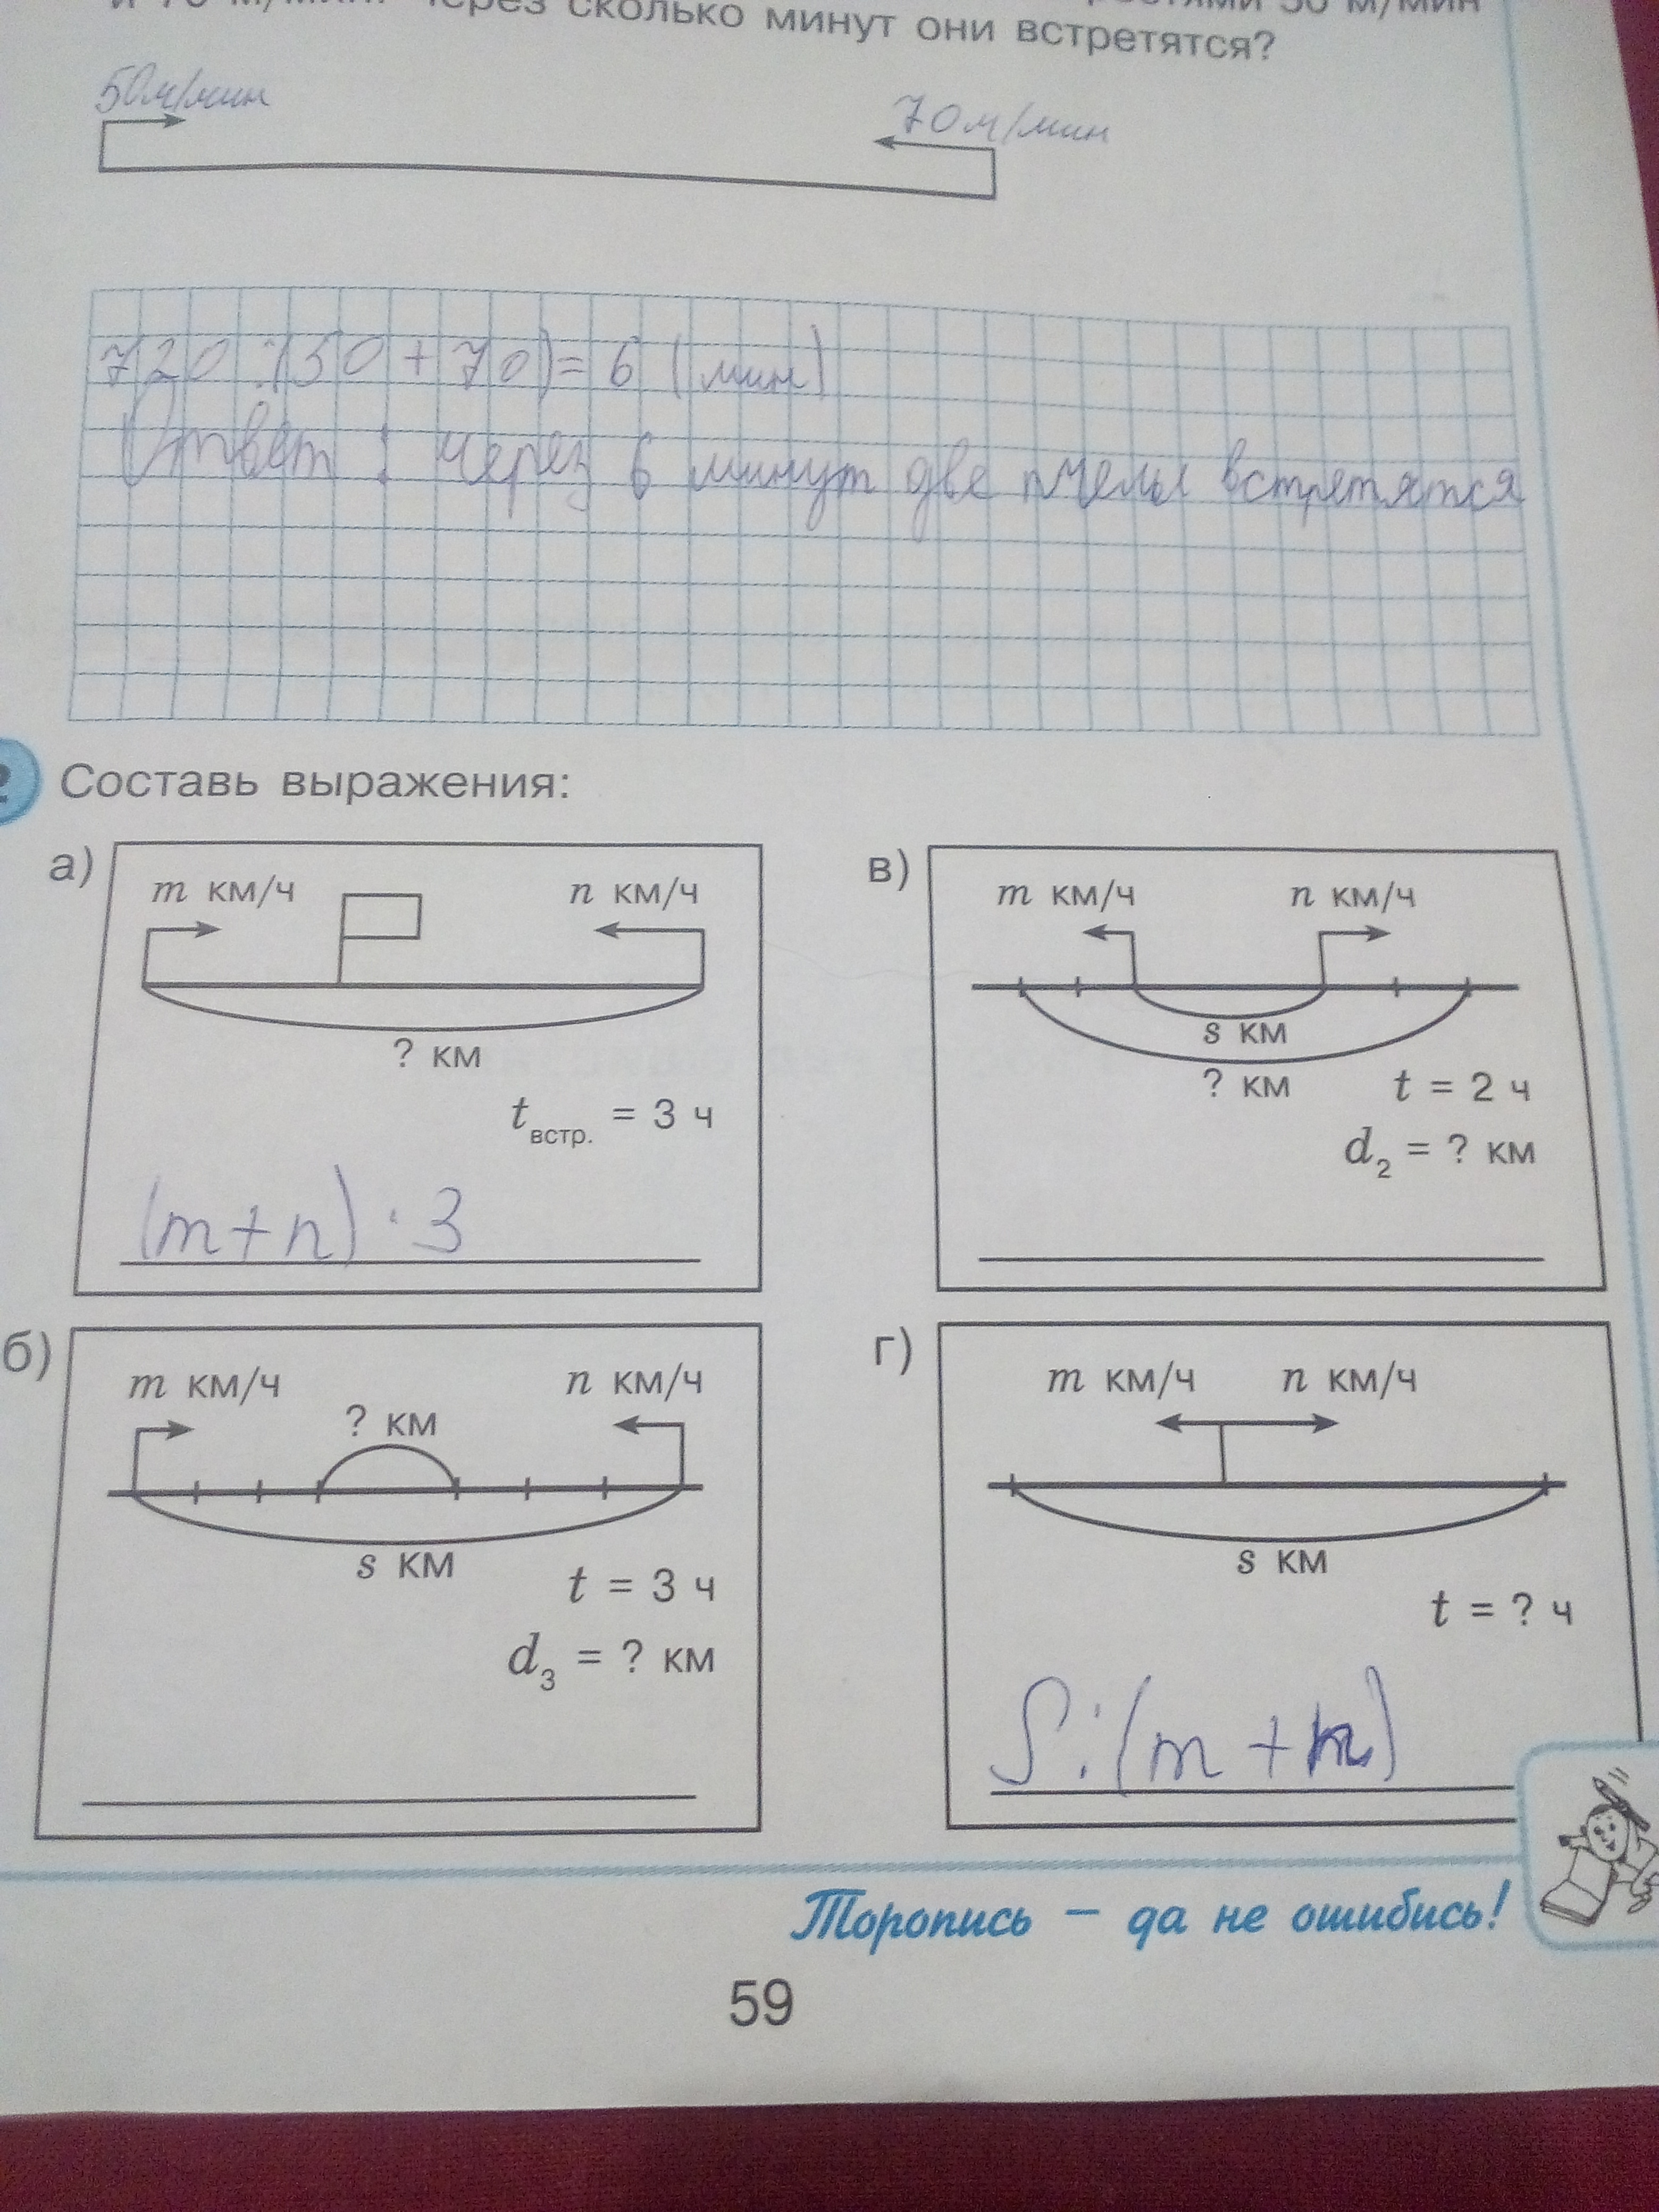 и 70 м/мин. Через сколько минут они встретятся?
50 м/мин
50м/мин
70м/мин
720 :(50 + 70)= 6 (мин)
Ответ : через 6 минут две пчелы встретятся
2 Составь выражения:
а)
m км/ч
n км/ч
? км
tвстр. = 3 ч
(m+n) · 3
в)
m км/ч
n км/ч
s км
? км
t = 2 ч
d2 = ? км
б)
m км/ч
n км/ч
? км
s км
t = 3 ч
d3 = ? км
г)
m км/ч
n км/ч
s км
t = ? ч
S:(m+n)
Торопись – да не ошибись!
59